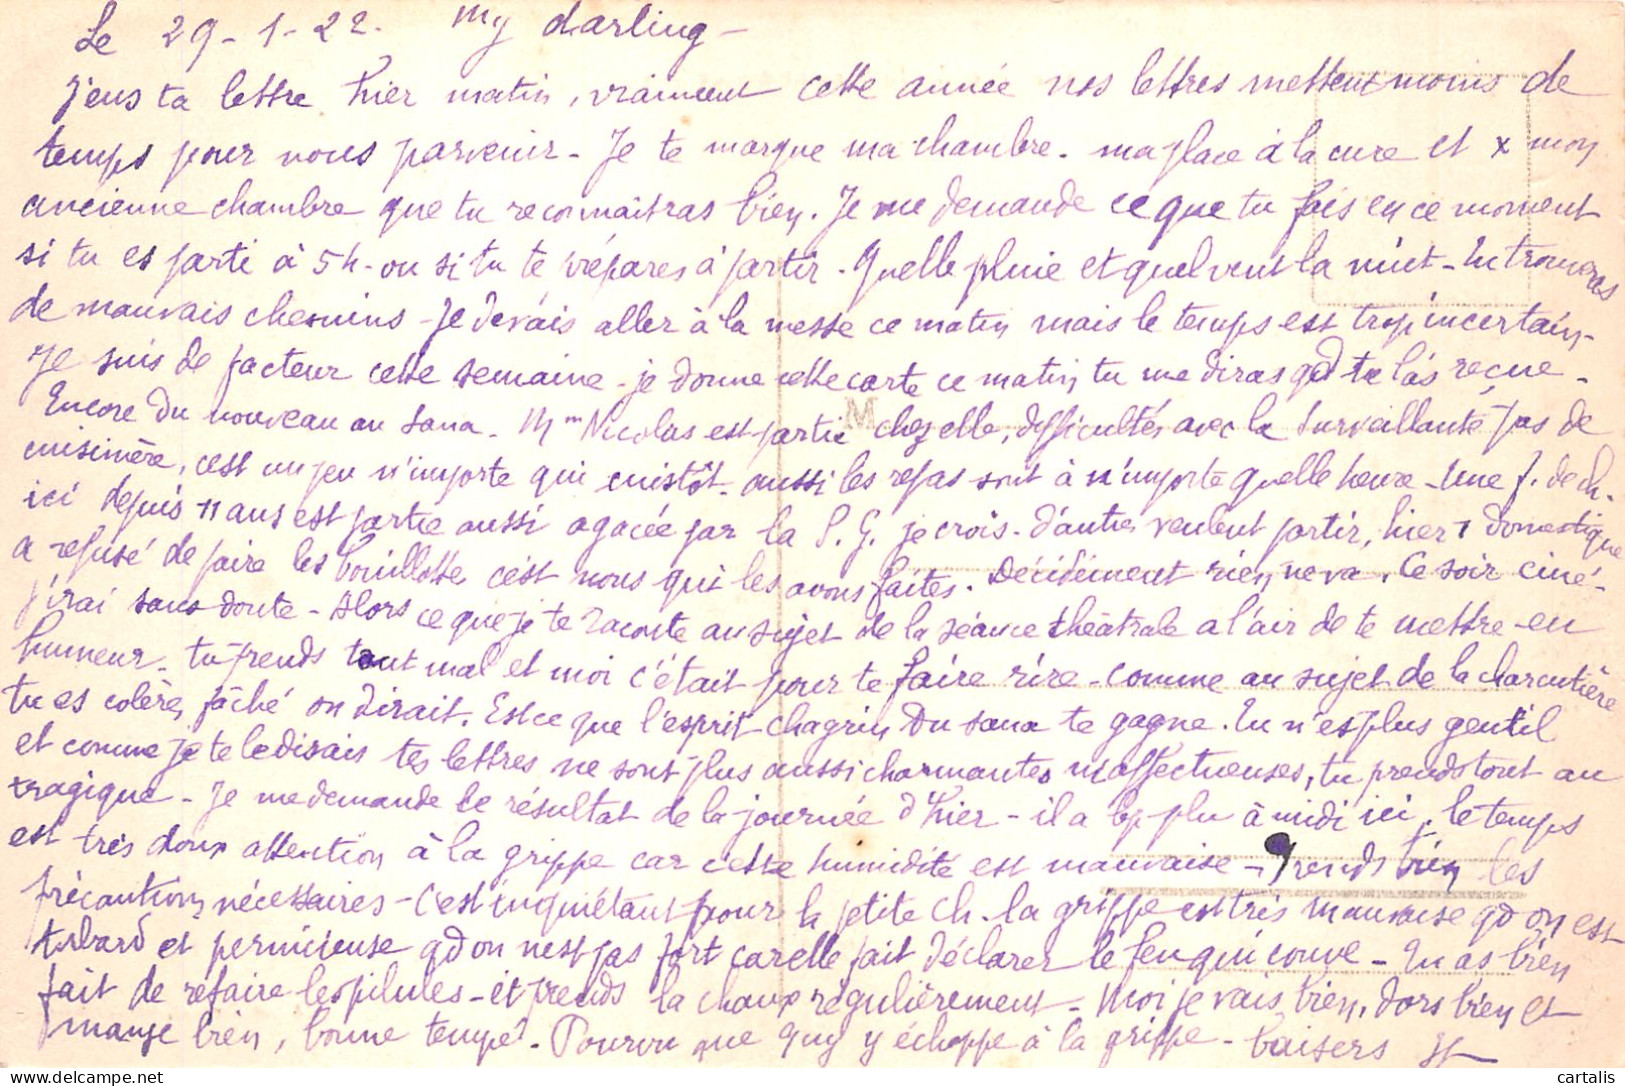 Le 29-1-22. My darling -
J'eus ta lettre hier matin, vraiment cette année nos lettres mettent moins de
temps pour nous parvenir - Je te marque ma chambre - ma place à la cure et x mon
ancienne chambre que tu reconnaîtras bien. Je me demande ce que tu fais en ce moment
si tu es parti à 5h - ou si tu te prépares à partir - Quelle pluie et quel vent la nuit - tu trouveras
de mauvais chemins - Je devais aller à la messe ce matin mais le temps est trop incertain -
Je suis de facteur cette semaine - je donne cette carte ce matin tu me diras qd tu l'as reçue -
Encore du nouveau au sana - Mme Nicolas est partie chez elle, difficultés avec la surveillante pas de
cuisinière, c'est un peu n'importe qui cuistôt - aussi les repas sont à n'importe quelle heure - Une f. de ch.
ici depuis 11 ans est partie aussi agacée par la P. G. je crois - d'autres veulent partir, hier 1 domestique
a refusé de faire les bouillottes c'est nous qui les avons faites. Décidément rien ne va. Ce soir ciné -
j'irai sans doute - Alors ce que je te raconte au sujet de la séance théâtrale a l'air de te mettre en
humeur - tu prends tout mal et moi c'était pour te faire rire - comme au sujet de la charcutière
tu es colère, fâché on dirait. Est ce que l'esprit chagrin du sana te gagne. Tu n'es plus gentil
et comme je te le disais tes lettres ne sont plus aussi charmantes ni affectueuses, tu prends tout au
tragique - Je me demande le résultat de la journée d'hier - il a plu à midi ici, le temps
est très doux attention à la grippe car cette humidité est mauvaise - Prends bien les
précautions nécessaires - C'est inquiétant pour la petite Ch. la grippe est très mauvaise qd on est
tubard et pernicieuse qd on n'est pas fort car elle fait déclarer le feu qui couve - Tu as bien
fait de refaire les pilules - et prends la chaux régulièrement - Moi je vais bien, dors bien et
mange bien, bonne tempé - Pourvu que Guy y échappe à la grippe - baisers
M
cartalis